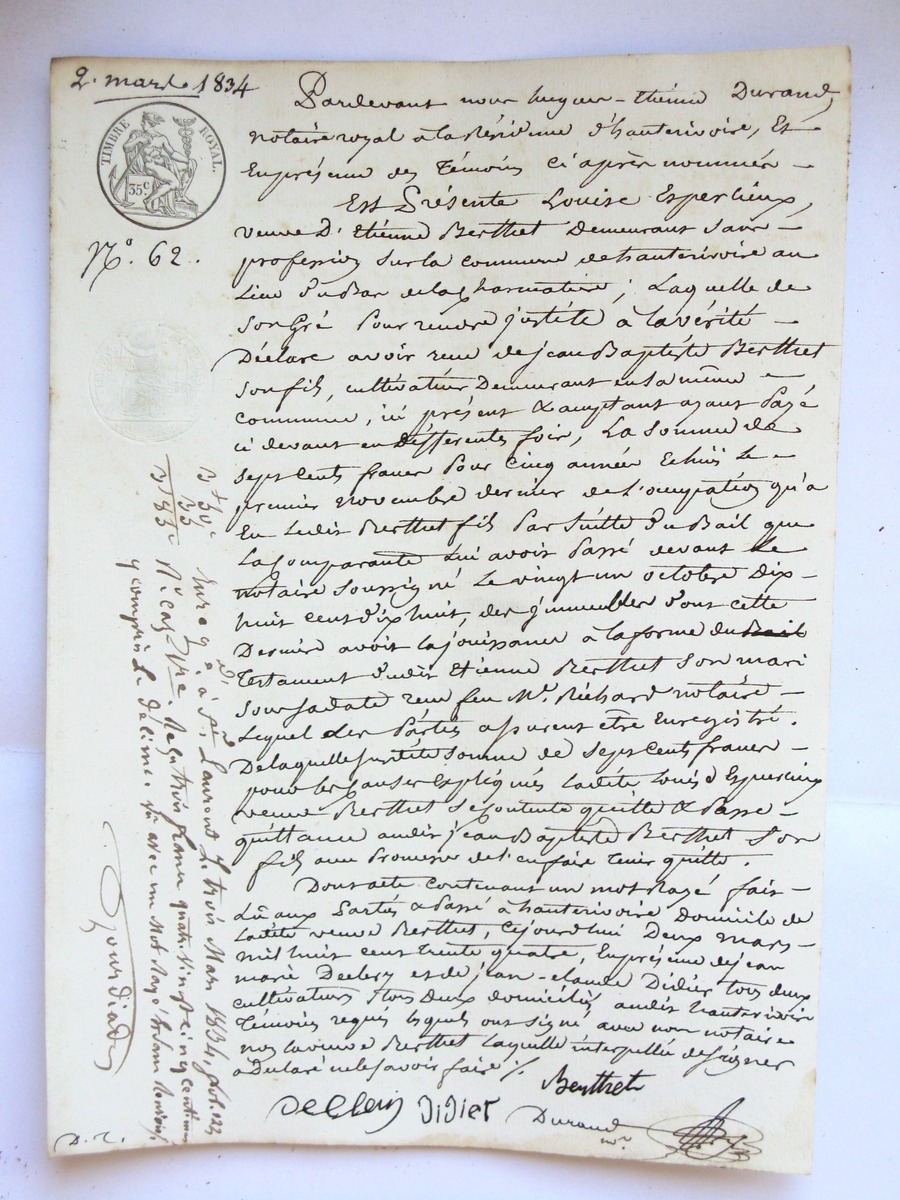 2. mars 1834
TIMBRE ROYAL.
35 c
N°. 62.
Pardevant nous hugues-thénis Durand,
notaire royal à la Résidence d'hauterivoire, Et
En présence des Témoins ci après nommés
Est Présente Louise Esperlieux,
veuve D'Etienne Berthet Demeurant sans
profession sur la commune de hauterivoire au
Lieu du Bas de la pharmatière; Laquelle de
Son Gré Pour rendre justite à la vérité
Déclare avoir reçu de jean Baptiste Berthet
son fils, cultivateur Demeurant en sa même
commune, ici présent & acceptant ayant Payé
ci devant en Différentes fois, La Somme de
Sept Cents francs Pour Cinq années Echus Le
premier novembre dernier de L'occupation qu'a
Eu Ledit Berthet fils Par Suitte du Bail que
La Comparante Lui avoit Passé devant Le
notaire Soussigné Le vingt un octobre Dix
huit cent dix huit, des jmmeubles dont cette
Dernière avoit la jouissance à la forme du Bail
Testament dudit Etienne Berthet Son mari
sous sa date reçu feu Me. Richard notaire
Lequel des Parties assurent être Enregistré.
De laquelle susditte somme de sept cents francs
pour les causes Expliqués Ladite Louise Esperlieux
veuve Berthet se contente quitte & Passe
quittance audit jean Baptiste Berthet Son
fils avec Promesse de l'en faire tenir quitte.
Dont acte contenant un mot Rayé fait
Lû aux Parties & Passé à hauterivoire Domicile de
Ladite veuve Berthet, Cejourd'hui Deux mars
mil huit cent trente quatre, En présence de jean
marie Declery et de jean-claude Didier tous deux
cultivateurs tous Deux domiciliés audit hauterivoire
Témoins requis lesquels ont signé avec nous notaire
non la veuve Berthet Laquelle interpellée de signer
a Déclaré ne le savoir faire ./.
Berthet
Declery Didier Durand
nre.
D. R.
3f 50c
35
3f 85c
Enregé. à St. Laurent Le trois Mars 1834, fol. 123
Rcto. Vre. Reçu trois francs quatre vingt cinq centimes
y compris Le Décime
avec un mot rayé